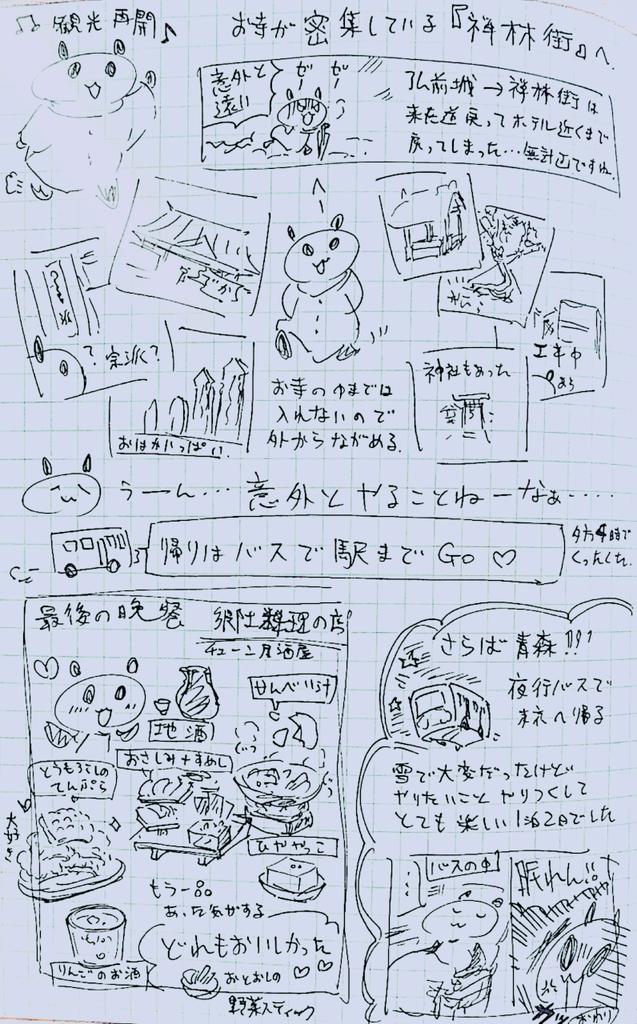 ♪♪ 観光再開♪
お寺が密集している『祥林街』へ
意外と
遠い
ゼー
ゼー
弘前城→祥林街は
来た道戻ってホテル近くまで
戻ってしまった…無計画ですね
?宗派?
おはかいっぱい
お寺の中までは
入れないので
外からながめる
神社もあった
工事中
うーん…意外とやることねーなぁ……
帰りはバスで駅までGo♡
夕方4時で
くったくた
最後の晩餐 郷土料理の店
チェーン居酒屋
地酒
せんべい汁
おさしみ+すめし
とうもろこしの
てんぷら
大好き
ひややっこ
もう一品
あった気がする
どれもおいしかった
りんごのお酒
おとおしの
野菜スティック
さらば青森!!!
夜行バスで
東京へ帰る
雪で大変だったけど
やりたいことやりつくして
とても楽しい1泊2日でした
バスの中
眠れん!!
おわり